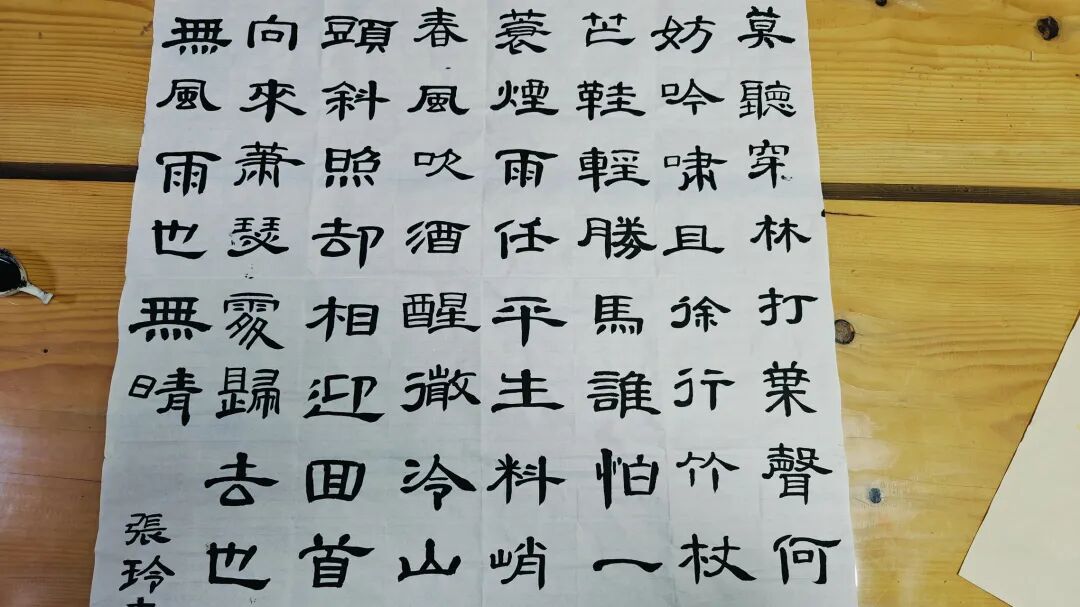 莫聽穿林打葉聲何
妨吟嘯且徐行竹杖
芒鞋輕勝馬誰怕一
蓑煙雨任平生料峭
春風吹酒醒微冷山
頭斜照却相迎回首
向來蕭瑟處歸去也
無風雨也無晴
張玲